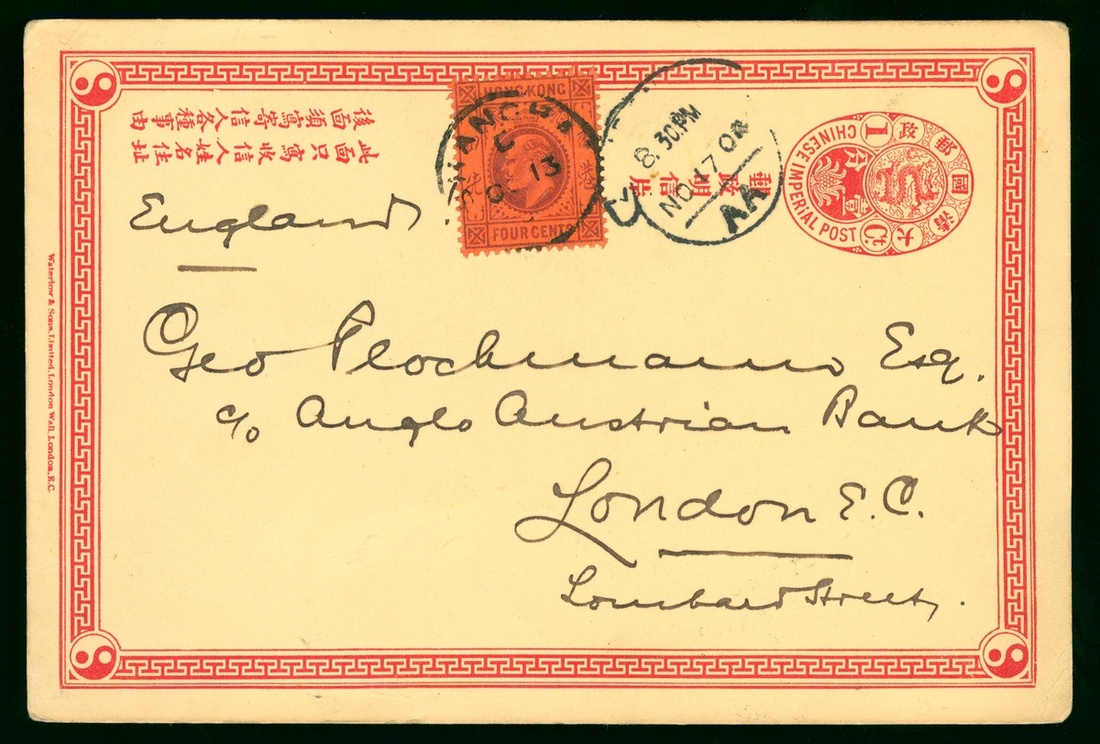 HONG KONG
FOUR CENTS
SHANGHA
C
OC 13
8.30.PM
NO 17 0
AA
大清國郵政
1
CHINESE IMPERIAL POST
Ct.
壹分
郵政明信片
此面只寫收信人姓名住址
後面須寫寄信人各種事由
England
Geo Plochmann Esq.
c/o Anglo Austrian Bank
London E.C.
Lombard Street.
Waterlow & Sons, Limited, London Wall, London, E.C.